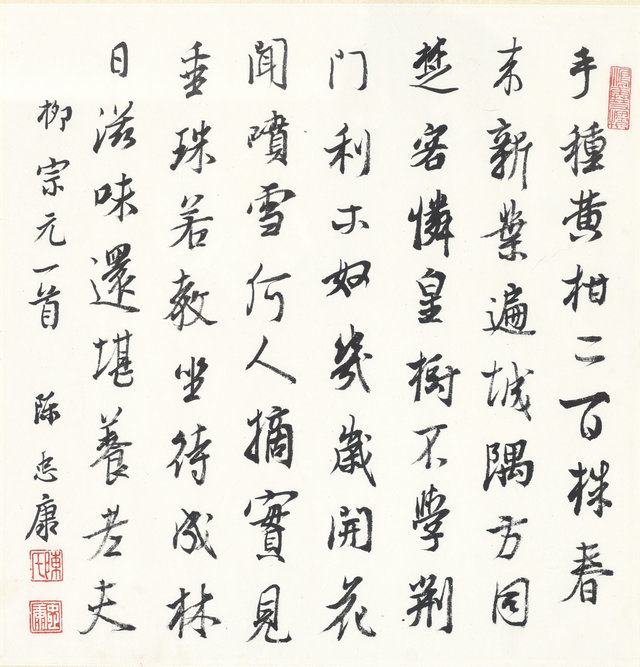 手種黄柑二百株春
来新葉遍城隅方同
楚客憐皇樹不學荆
门利木奴幾歲開花
聞噴雪何人摘實見
垂珠若教坐待成林
日滋味還堪養老夫
柳宗元一首 陈忠康
陳氏
忠康